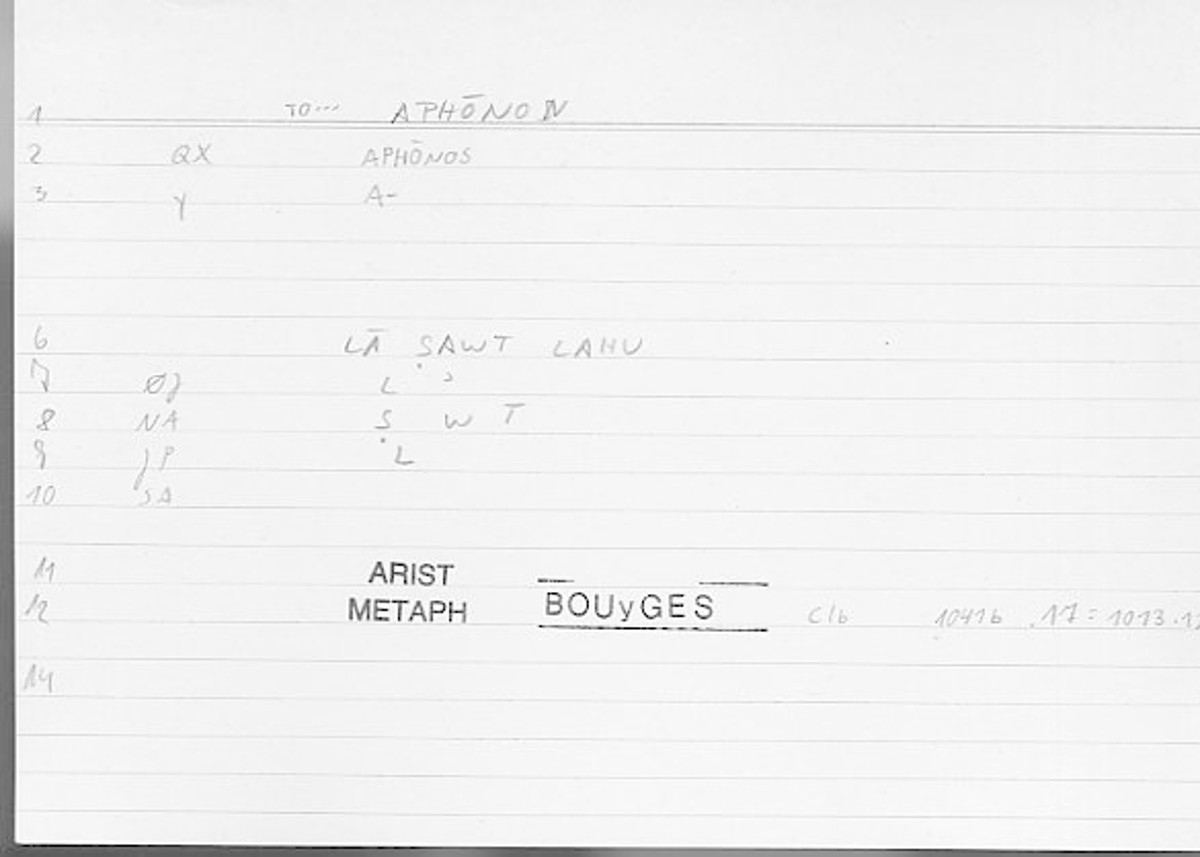 1 TO... APHŌNON
2 QX APHŌNOS
3 Y A-
6 LĀ ṢAWT LAHU
7 ØJ L ʾ
8 NA Ṣ W T
9 JP L
10 SA
11 ARIST
12 METAPH BOUyGES C/b 1041b 17 = 1013.12
14